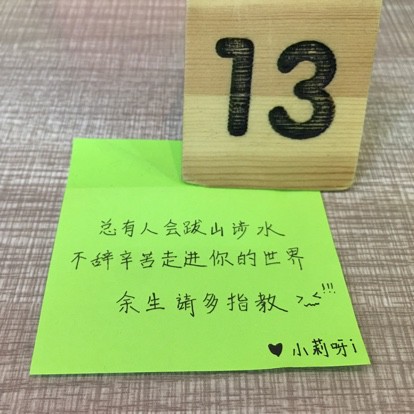 13
总有人会跋山涉水
不辞辛苦走进你的世界
余生請多指教 >﹏<!!!
♥ 小莉呀i